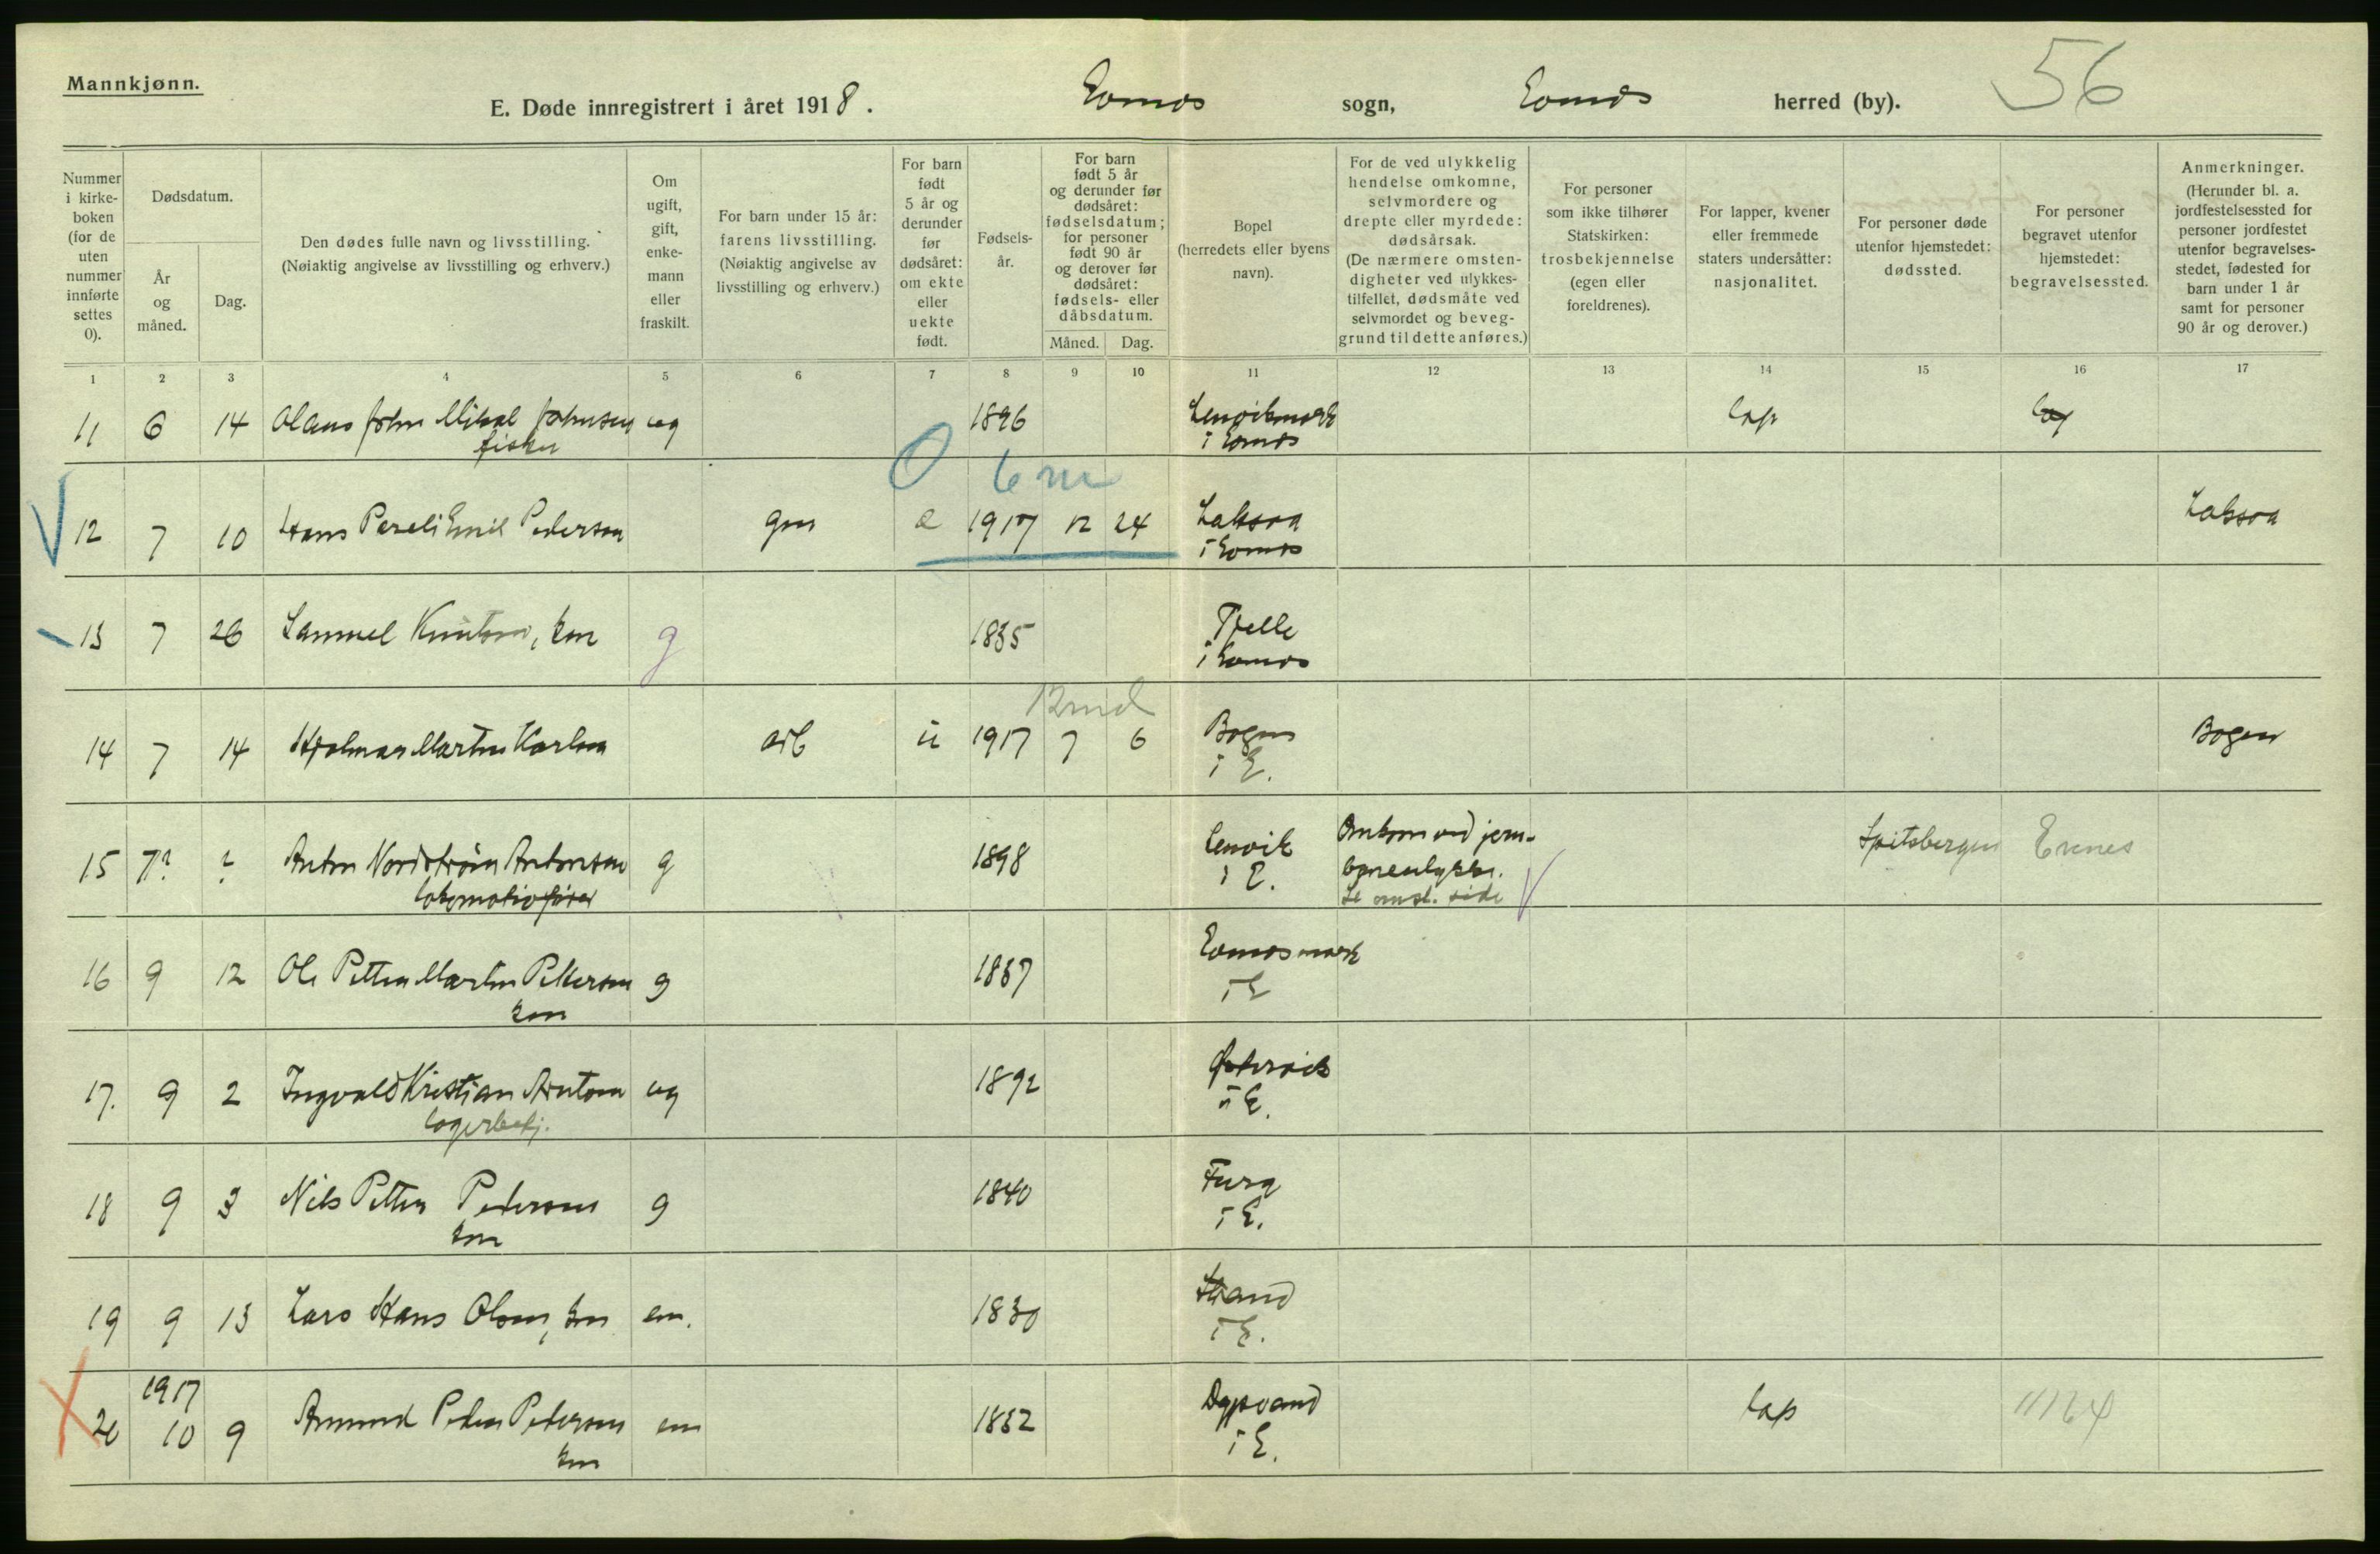 Mannkjønn.
E. Døde innregistrert i året 1918. Evenes sogn, Evenes herred (by). 56
Nummer i kirkeboken (for de uten nummer innførte settes 0).
Dødsdatum.
År og måned.
Dag.
Den dødes fulle navn og livsstilling.
(Nøiaktig angivelse av livsstilling og erhverv.)
Om ugift, gift, enkemann eller fraskilt.
For barn under 15 år: farens livsstilling. (Nøiaktig angivelse av livsstilling og erhverv.)
For barn født 5 år og derunder før dødsåret: om ekte eller uekte født.
Fødselsår.
For barn født 5 år og derunder før dødsåret: fødselsdatum; for personer født 90 år og derover før dødsåret: fødsels- eller dåbsdatum.
Måned. Dag.
Bopel (herredets eller byens navn).
For de ved ulykkelig hendelse omkomne, selvmordere og drepte eller myrdede: dødsårsak. (De nærmere omstendigheter ved ulykkestilfellet, dødsmåte ved selvmordet og beveggrund til dette anføres.)
For personer som ikke tilhører Statskirken: trosbekjennelse (egen eller foreldrenes).
For lapper, kvener eller fremmede staters undersåtter: nasjonalitet.
For personer døde utenfor hjemstedet: dødssted.
For personer begravet utenfor hjemstedet: begravelsessted.
Anmerkninger. (Herunder bl. a. jordfestelsessted for personer jordfestet utenfor begravelsesstedet, fødested for barn under 1 år samt for personer 90 år og derover.)
1 2 3 4 5 6 7 8 9 10 11 12 13 14 15 16 17
11 6 14 Olaus John Mikal Johnsen ug 1896 Lenvikmark lap
fisker i Evenes
0 6 m
12 7 10 Hans Pareli Emil Pedersen gm e 1917 12 24 Laksaa Laksaa
i Evenes
13 7 26 Samuel Knutsen, km g 1835 Tjelle
i Evenes
12 md
14 7 14 Hjalmar Martin Karlsen arb u 1917 7 6 Bogen Bogen
i E.
15 7? ? Anton Nordstrøm Antonsen g 1898 Lenvik Omkom ved jern- Spitsbergen Evenes
lokomotivfører i E. baneulykke.
Se omst. side
16 9 12 Ole Petter Martin Pettersen g 1837 Evenesmark
km i E
17. 9 2 Ingvald Kristian Arntsen ug 1892 Østervik
lagerbetj. i E.
18 9 3 Nils Petter Pedersen g 1840 Furø
km i E.
19 9 13 Lars Hans Olsen, km em. 1830 Strand
i E.
1917
20 10 9 Amund Peder Pedersen em 1832 Dypvand lap
km i E.